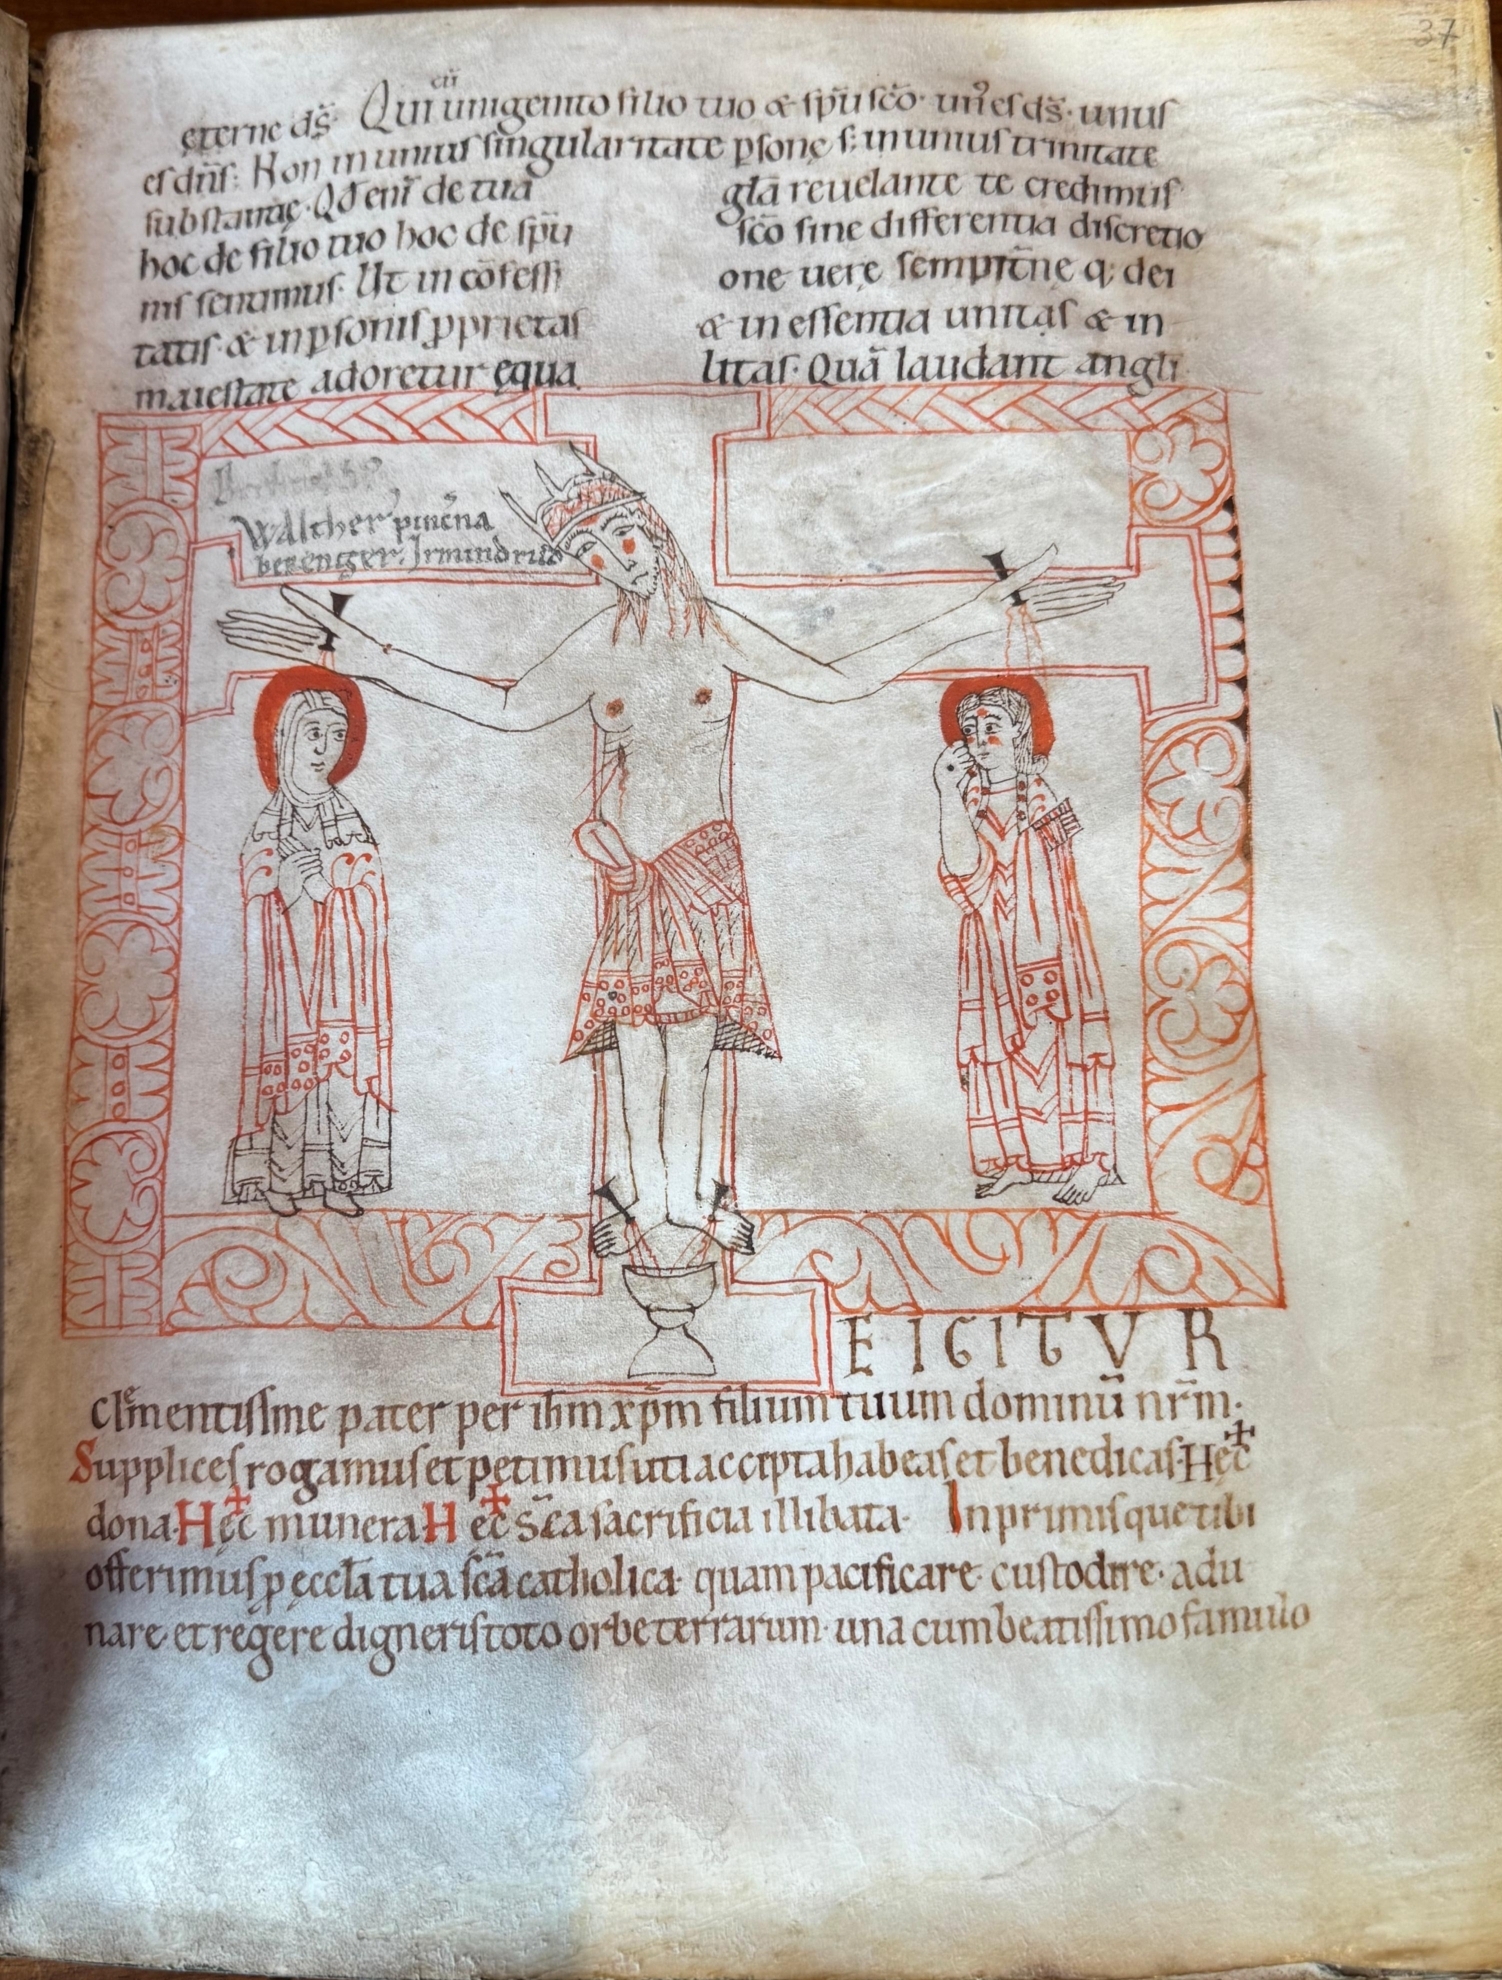 37
cū
ęterne ds̄. Qui unigenito filio tuo & spū sc̄o. un' es ds̄. unus
es dn̄s. Non in unius singularitate psonę s; in unius trinitate
substantię. Qd eni de tua gl̄a reuelante te credimus
hoc de filio tuo hoc de spū sc̄o sine differentia discretio
nis sentimus. Ut in cōfessi one uerę sempitn̄ę q; dei
tatis. & in psonis pprietas & in essentia unitas & in
maiestate adoretur ęqua litas. Quā laudant angli
Walther pincn̄a
berenger. Irmindrud
E IGITVR
Clementissime pater per ihm xp̄m filium tuum dominū nr̄m.
Supplices rogamus et petimus uti accepta habeas et benedicas. Hęc
dona. Hęc munera. Hęc sc̄a sacrificia illibata. Inprimis que tibi
offerimus p ęccl̄a tua sc̄a catholica. quam pacificare. custodire. adu
nare. et regere digneris toto orbe terrarum. una cum beatissimo famulo